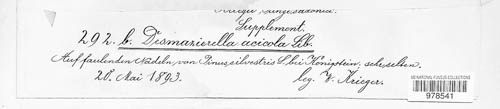 Krieger, Fungi saxonici.
Supplement.
292. b. Desmazierella acicola Lib.
Auf faulenden Nadeln von Pinus silvestris L. bei Königstein, sehr selten.
20. Mai 1893. leg. W. Krieger.
978541